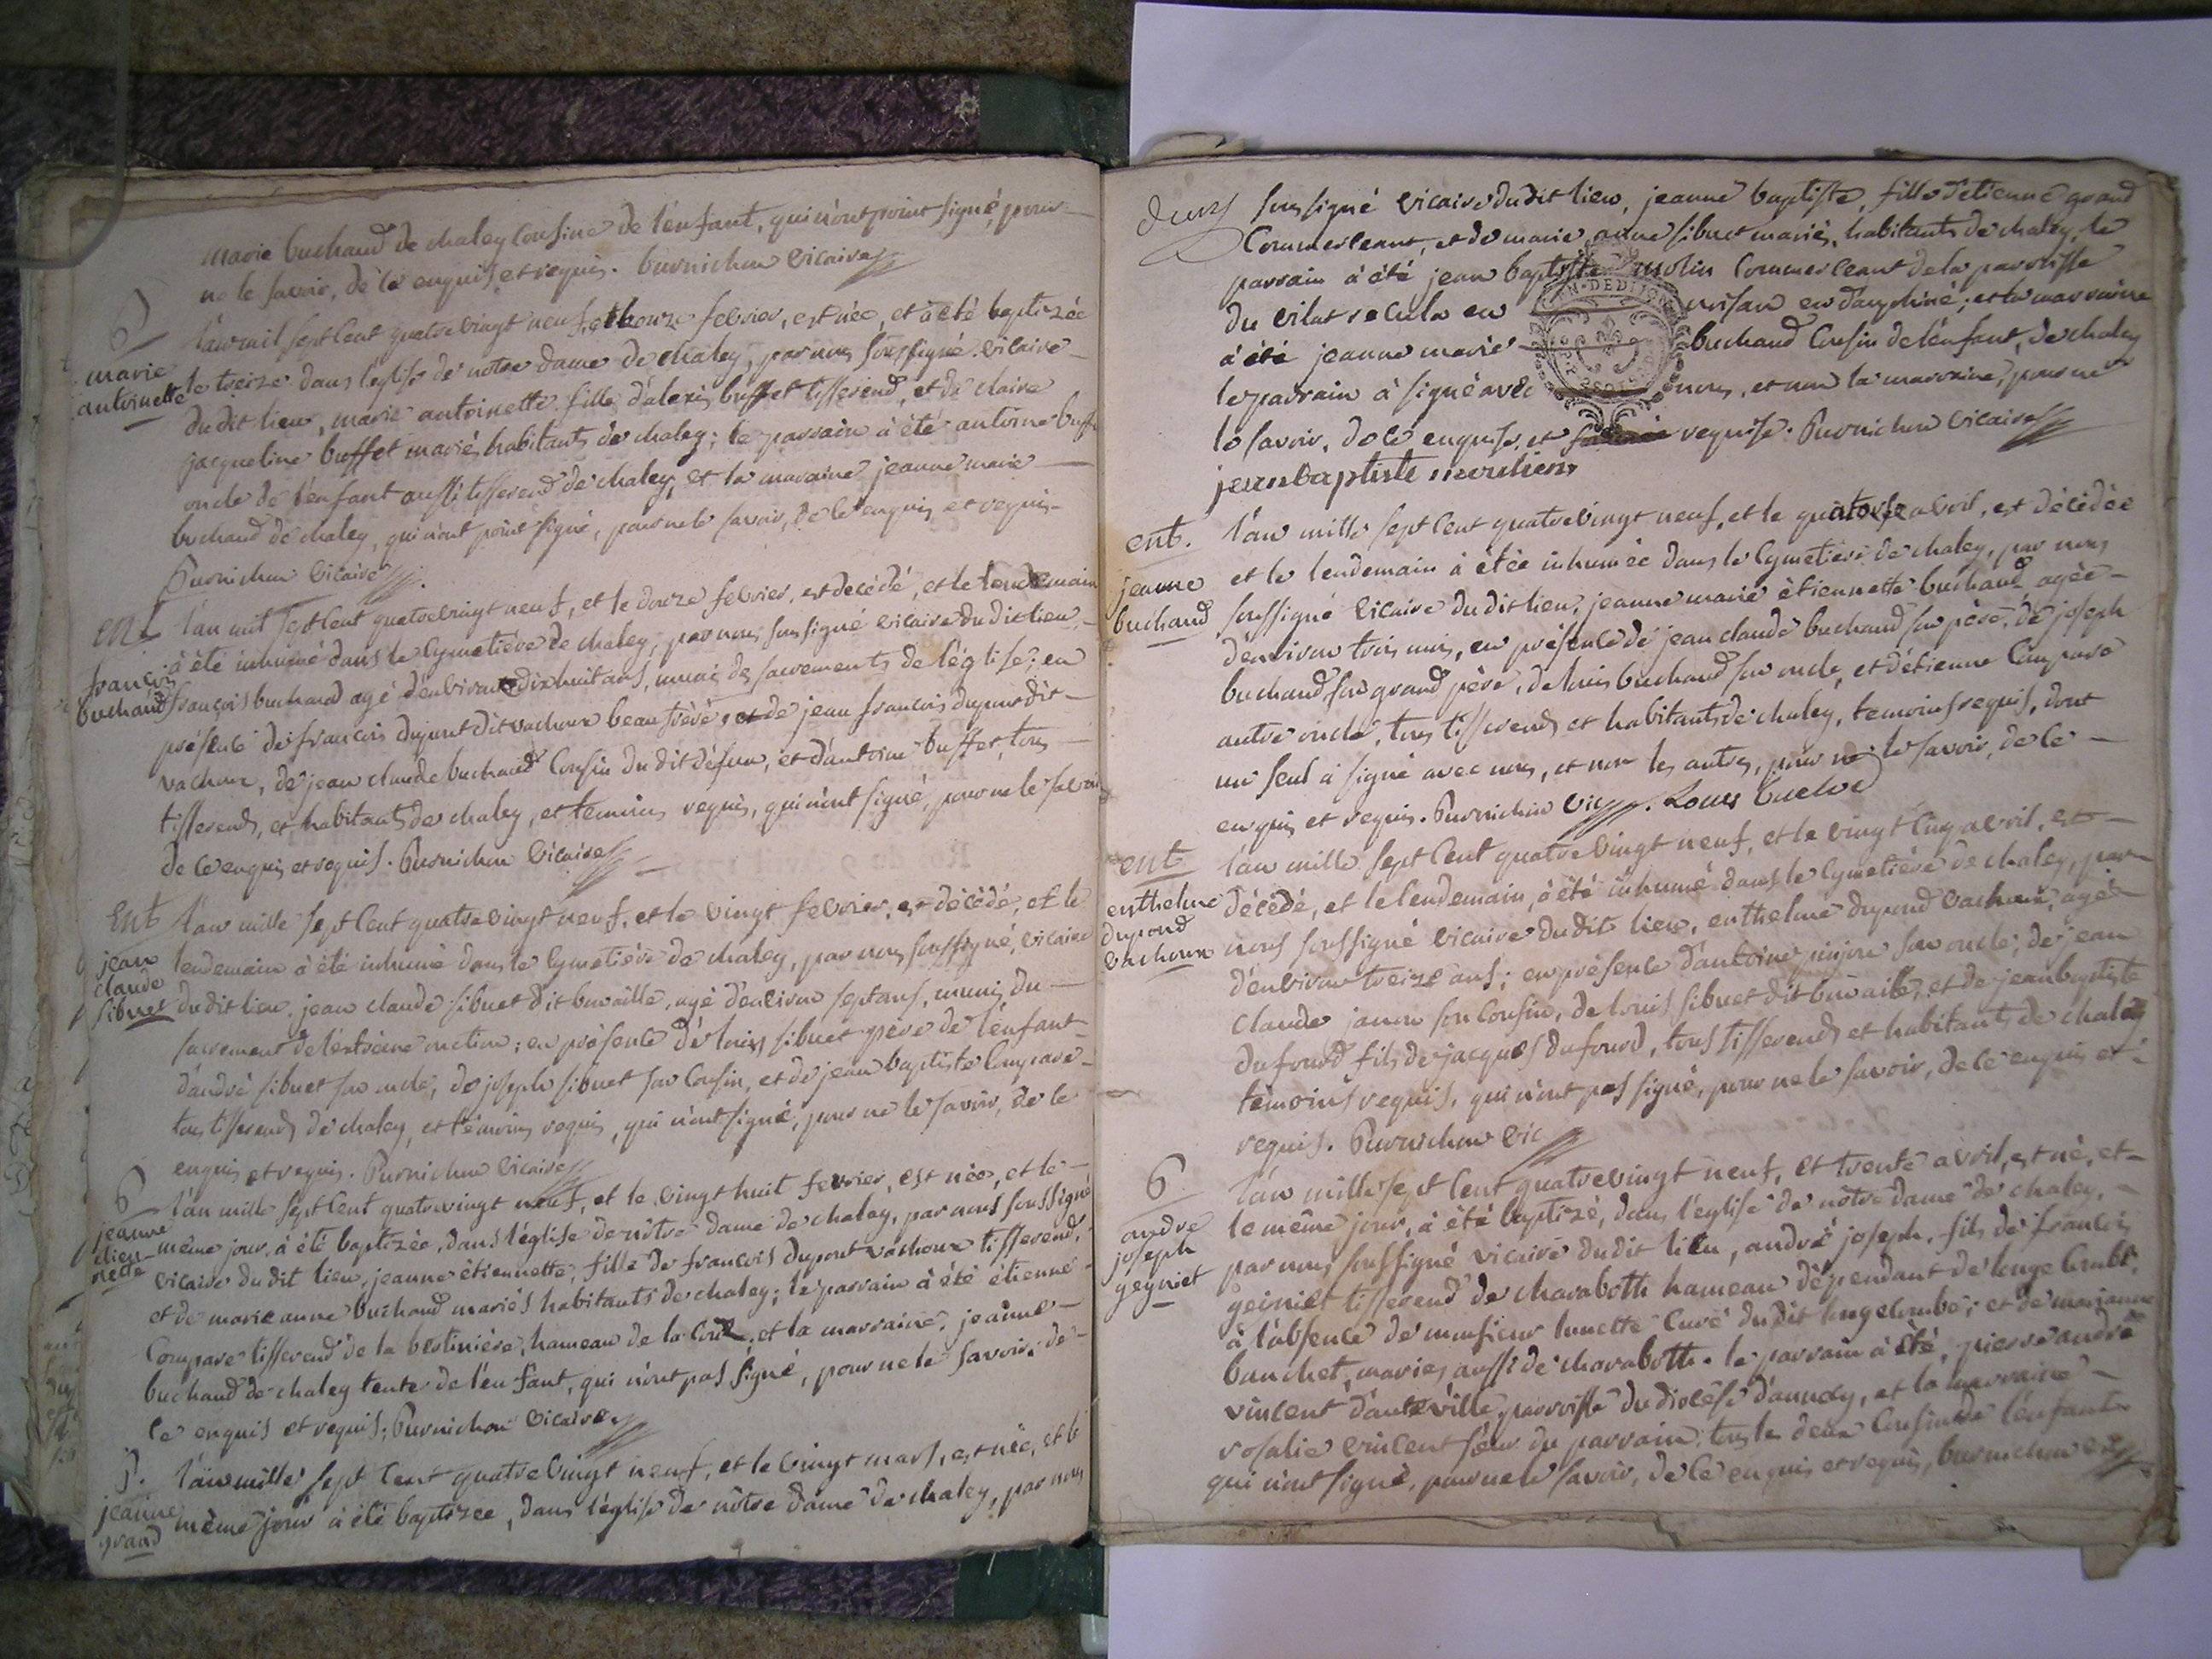 marie buchand de chaley cousine de l'enfant, qui n'ont point signé, pour
ne le savoir, de ce enquis, et requis. burnichon vicaire
B
marie
antoinette
l'an mil sept cent quatre vingt neuf, et douze febvrier, est née, et à été baptizée
le treize dans l'église de notre dame de chaley, par nous soussigné vicaire
du dit lieu, marie antoinette fille d'alexis buffet tisserend, et de claire
jacqueline buffet mariés habitants de chaley; le parrain à été antoine buff
oncle de l'enfant aussi tisserend de chaley, et la maraine jeanne marie
buchand de chaley, qui n'ont point signé, pour ne le savoir, de ce enquis et requis.
Burnichon vicaire
ent
francois
buchand
l'an mil sept cent quatre vingt neuf, et le douze febvrier, est decédé, et le lendemain
à été inhumé dans le cymetière de chaley, par nous soussigné vicaire du dit lieu,
françois buchand agé d'environ dix huit ans, muni des sacrements de l'église; en
présence de francois dupont dit vachoux beau frère, et de jean francois dupont dit
vachoux, de jean claude buchand cousin du dit défun, et d'antoine buffet, tous
tisserends, et habitants de chaley, et temoins requis, qui n'ont signé, pour ne le savoir
de ce enquis et requis. burnichon vicaire
Ent
jean
claude
sibuet
l'an mille sept cent quatre vingt neuf, et le vingt febvrier, est décédé, et le
lendemain à été inhumé dans le cymetière de chaley, par nous soussigné, vicaire
du dit lieu, jean claude sibuet dit buvaille, agé d'environ sept ans, muni du
sacrement de l'extrème onction; en présence de louis sibuet père de l'enfant
d'andré sibuet son oncle, de joseph sibuet son cousin, et de jean baptiste compare
tous tisserends de chaley, et témoins requis, qui n'ont signé, pour ne le savoir, de ce
enquis et requis. Burnichon vicaire
B
jeanne
etien-
nette
l'an mille sept cent quatre vingt neuf, et le vingt huit fevrier, est née, et le
même jour, à été baptizée, dans l'église de nôtre dame de chaley, par nous soussigné
vicaire du dit lieu, jeanne étiennette, fille de francois dupont vachoux tisserend,
et de marie anne buchand mariés habitants de chaley; le parrain à été étienne
Compare tisserend de la bertinière, hameau de la Couz, et la marraine, jeanne
buchand de chaley tente de l'enfant, qui n'ont pas signé, pour ne le savoir, de
ce enquis et requis; Burnichon vicaire
jeanne
grand
l'an mille sept cent quatre vingt neuf, et le vingt mars, est née, et le
même jour à été baptizée, dans l'église de nôtre dame de chaley, par nous
deux
soussigné vicaire du dit lieu, jeanne baptiste, fille d'etienne grand
Commerceant, et de marie anne sibuet mariés, habitants de chaley, le
parrain à été jean baptiste molin Commerceant de la parroisse
du vilat en oisan en dauphiné; et la marraine
à été jeanne marie buchand Cousin de l'enfant, de chaley
le parrain à signé avec nous, et non la marraine, pour ne
le savoir, de ce enquise, et requise. Burnichon vicaire
jean baptiste
ent.
jeanne
buchand
l'an mille sept cent quatre vingt neuf, et le quatorze avril, est décédée
et le lendemain à étée inhumée dans le Cymetière de chaley, par nous
soussigné vicaire du dit lieu, jeanne marie étiennette buchand agée
d'environ trois mois, en présence de jean claude buchand son père, de joseph
buchand son grand père, de louis buchand son oncle, et d'étienne Compare
autre oncle, tous tisserends et habitants de chaley, temoins requis, dont
un seul à signé avec nous, et non les autres, pour ne le savoir, de ce
enquis et requis. Burnichon vic. Louis
ent
enthelme
dupond
vachoux
l'an mille sept cent quatre vingt neuf, et le vingt cinq avril, est
décédé, et le lendemain, à été inhumé dans le cymetière de chaley, par
nous soussigné vicaire du dit lieu, enthelme dupond vachoux, agé
d'environ treize ans; en présence d'antoine pinjon son oncle, de jean
claude janin son Cousin, de louis sibuet dit buvaille, et de jean baptiste
dufourd fils de jacques dufourd, tous tisserends et habitants de chaley
témoins requis, qui n'ont pas signé, pour ne le savoir, de ce enquis et
requis. Burnichon vic
B
andre
joseph
geyniet
l'an mille sept cent quatre vingt neuf, et trente avril, est né, et
le même jour, à été baptizé, dans l'église de nôtre dame de chaley,
par nous soussigné vicaire du dit lieu, andré joseph, fils de francois
geiniet tisserend de charabotte hameau dépendant de longe Combe,
à l'absence de monsieur lunette Curé du dit longecombe; et de marianne
banchet, mariés aussi de charabotte. le parrain à été, pierre andré
vincent d'auteville, parroisse du diocèse d'annecy, et la marraine
rosalie vincent seur du parrain, tous les deux Cousins de l'enfant
qui n'ont signé, pour ne le savoir, de ce enquis et requis, burnichon vic